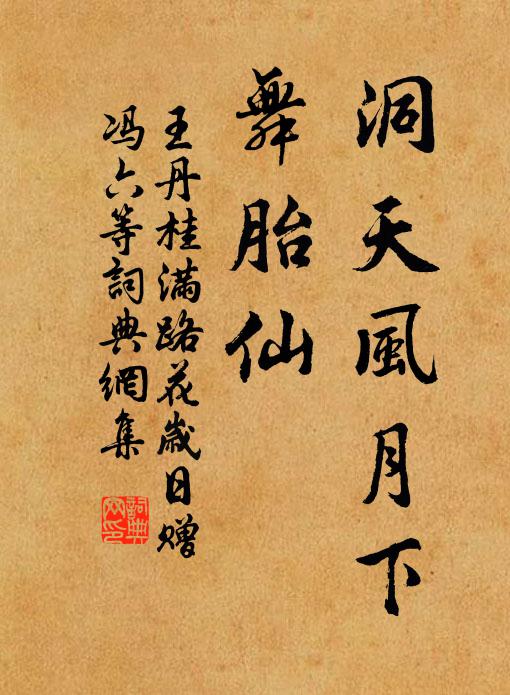 洞天風月下
舞胎仙
王丹桂满路花歲日贈
冯六等詞典網集
詞典网印